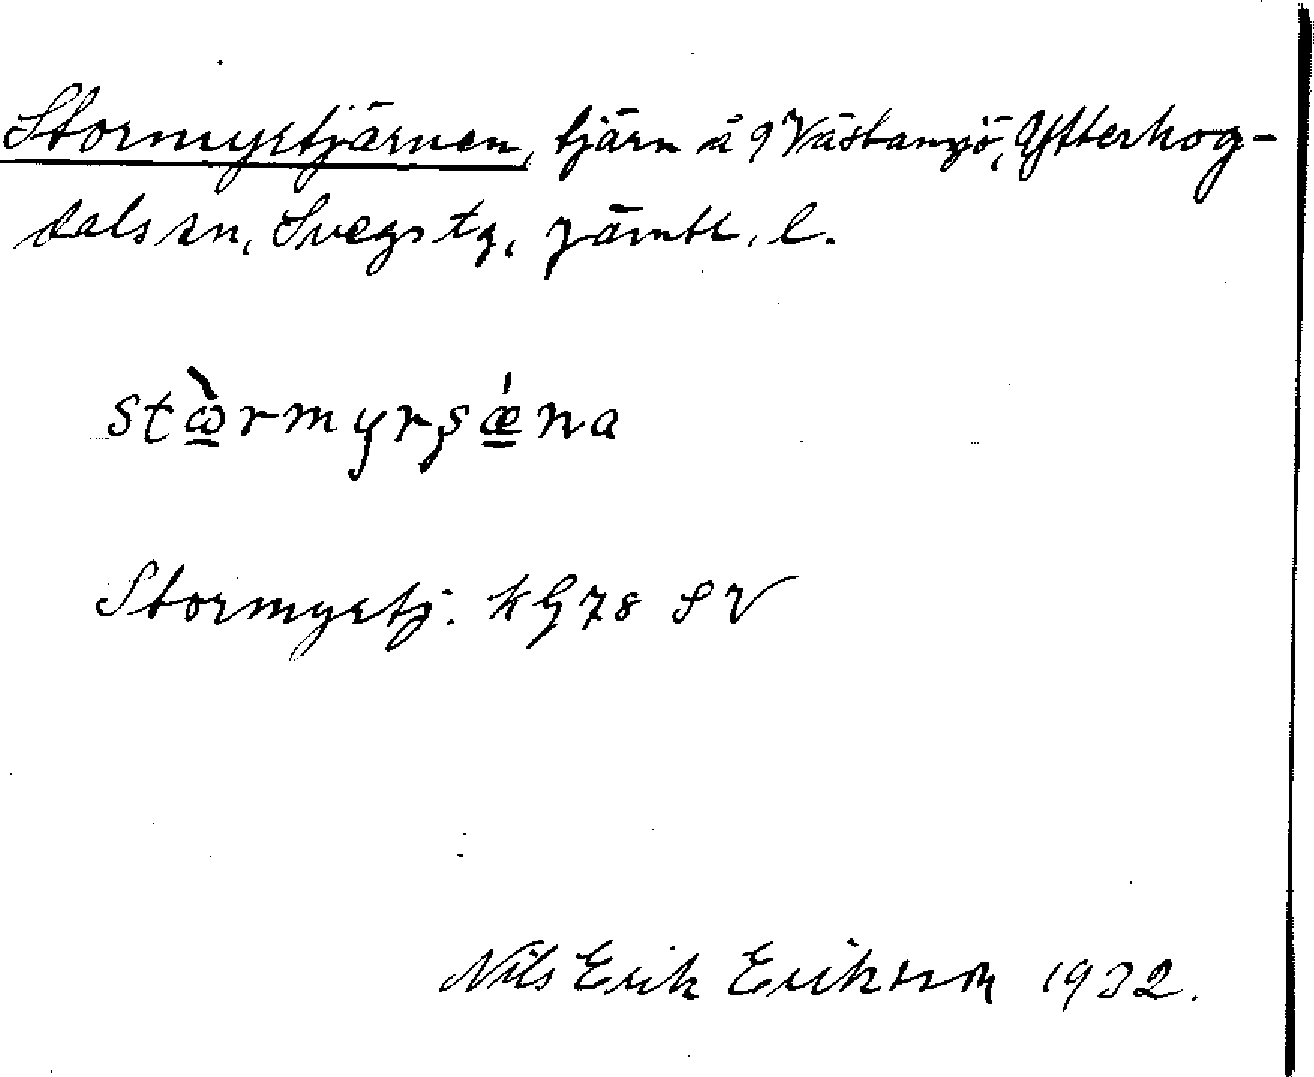 Stormyrtjärnen, tjärn å 9 Västansjö, Ytterhog-
dals sn, Svegs tg, Jämtl. l.
stὼ̲rmyrşǽ̲na
Stormyrtj. kG 78 SV
Nils Erik Erikson 1932.